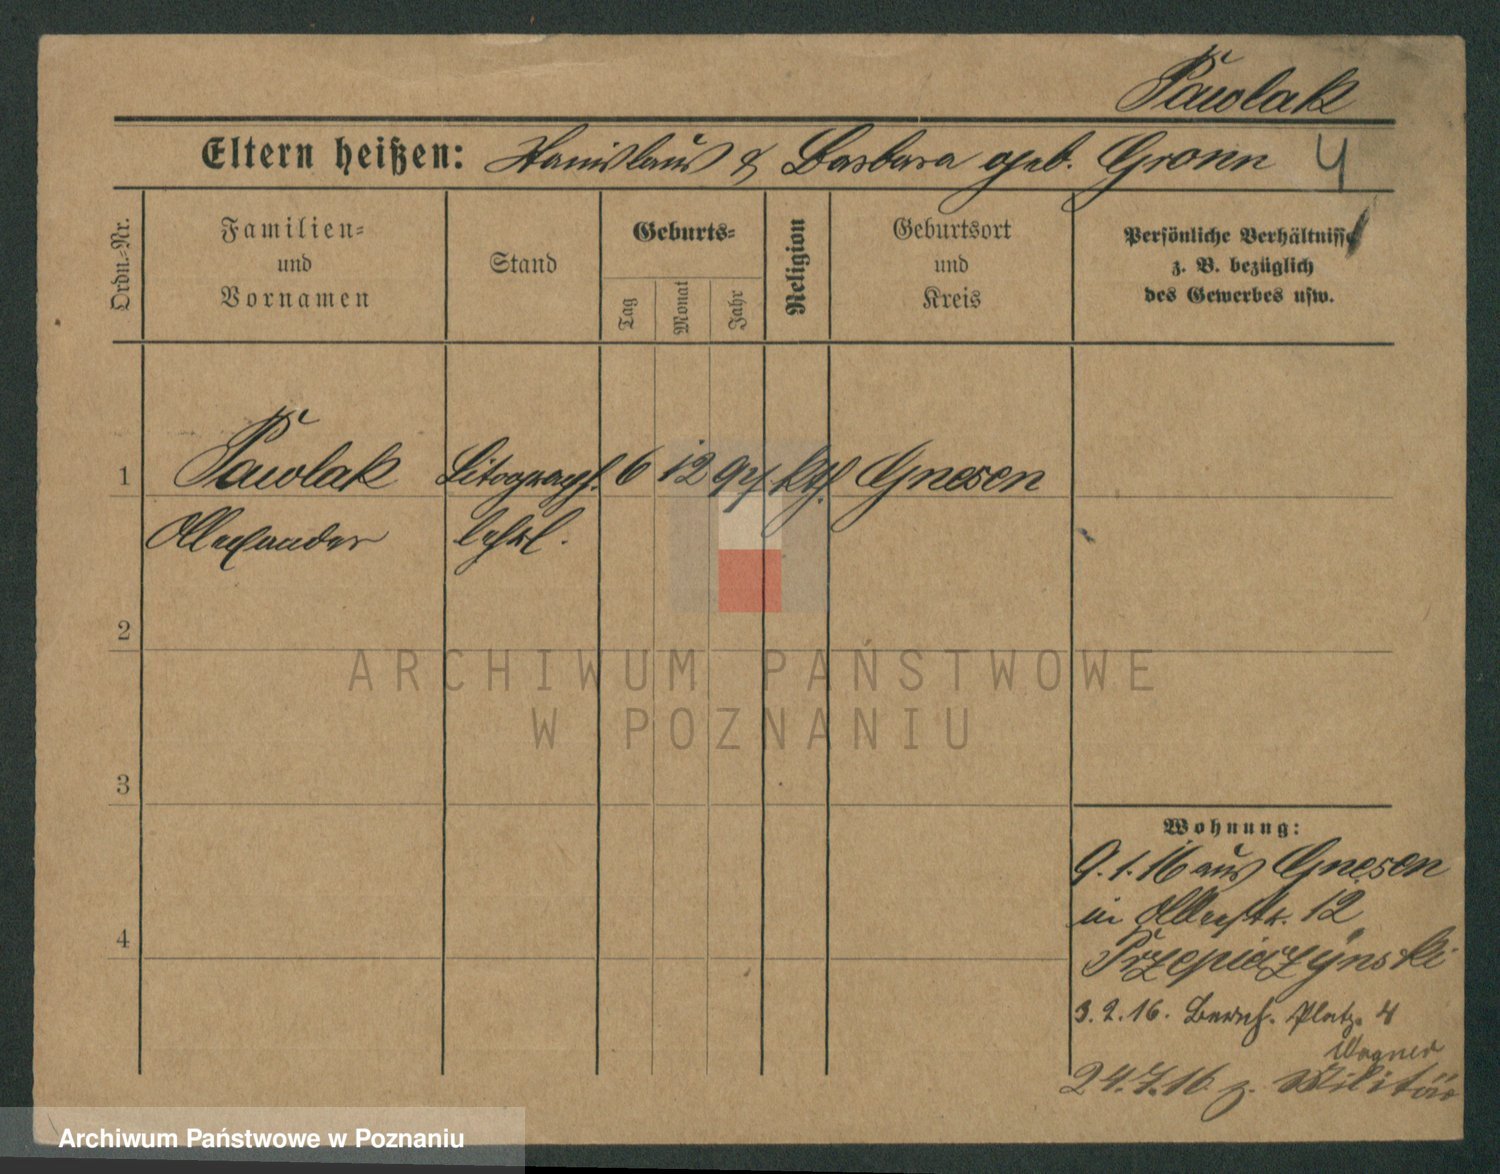 Pawlak
Eltern heißen: Stanislaus & Barbara geb. Gronn
4
Ordn.-Nr.
Familien-
und
Vornamen
Stand
Geburts-
Tag
Monat
Jahr
Religion
Geburtsort
und
Kreis
Persönliche Verhältnisse
z. B. bezüglich
des Gewerbes usw.
1 Pawlak Litograph. 6 12 97 kth. Gnesen
Alexander lehrl.
2
3
4
ARCHIWUM PAŃSTWOWE
W POZNANIU
Wohnung:
9.1.16 aus Gnesen
in 12
3.2.16. Bernh. Platz. 4
Wagner
24.7.16 z. Militär
Archiwum Państwowe w Poznaniu